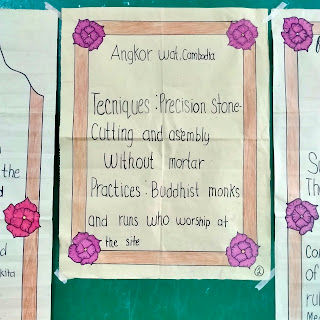 Angkor wat, Cambodia
Tecniques : Precision stone-
Cutting and asembly
Without mortar
Practices : Buddhist monks
and runs who worship at
the site
the
d
kita
S
Th
Con
of
rul
Me